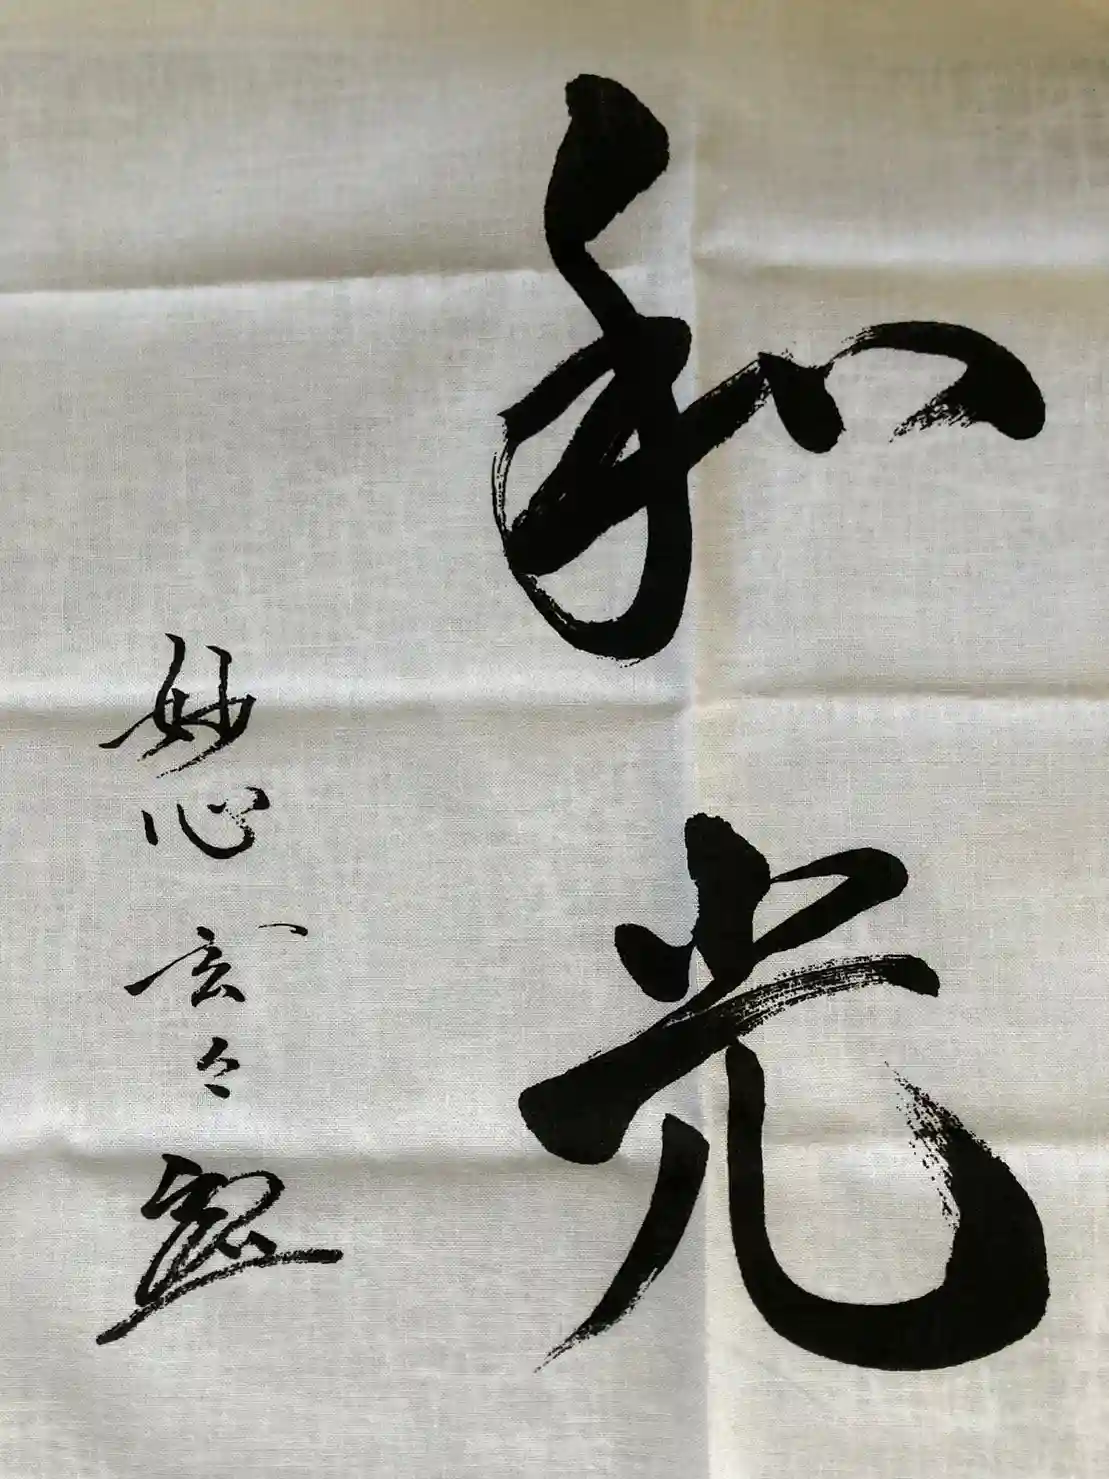 和光
妙心 玄々